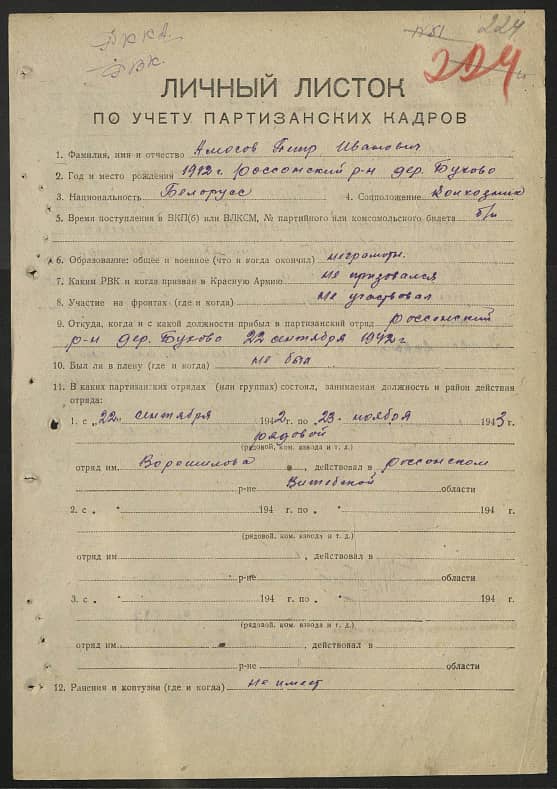 РККА
РВК.
№51 224
224
ЛИЧНЫЙ ЛИСТОК
ПО УЧЕТУ ПАРТИЗАНСКИХ КАДРОВ
1. Фамилия, имя и отчество Амосов Петр Иванович
2. Год и место рождения 1912 г. Россонский р-н дер. Буково
3. Национальность Белорусс 4. Соцположение Колхозник
5. Время поступления в ВКП(б) или ВЛКСМ, № партийного или комсомольского билета б/п
6. Образование: общее и военное (что и когда окончил) неграмотн.
7. Каким РВК и когда призван в Красную Армию не призовался
8. Участие на фронтах (где и когда) не участвовал
9. Откуда, когда и с какой должности прибыл в партизанский отряд россонский
р-н дер. Буково 22 сентября 1942 г
10. Был ли в плену (где и когда) не был
11. В каких партизанских отрядах (или группах) состоял, занимаемая должность и район действия
отряда:
1. с „22" сентября 1942 г. по „23" ноября 1943 г.
рядовой
(рядовой, ком. взвода и т. д.)
отряд им Ворошилова, действовал в россонском
р-не Витебской области
2. с „ " 194 г. по „ " 194 г.
(рядовой, ком. взвода и т. д.)
отряд им , действовал в
р-не области
3. с „ " 194 г. по „ " 194 г.
(рядовой, ком. взвода и т. д.)
отряд им , действовал в
р-не области
12. Ранения и контузии (где и когда) не имеет